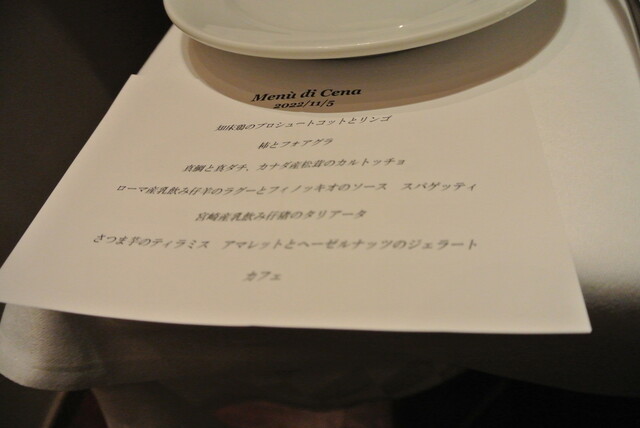 Menù di Cena
2022/11/5
のプロシュートコットとリンゴ
柿とフォアグラ
真鯛と真ダチ、カナダ産松茸のカルトッチョ
ローマ産乳飲み仔羊のラグーとフィノッキオのソース　スパゲッティ
宮崎産乳飲み仔猪のタリアータ
さつま芋のティラミス　アマレットとヘーゼルナッツのジェラート
カフェ